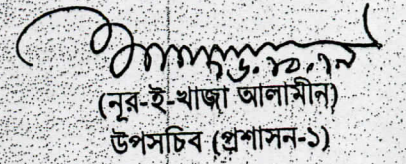 (নূর-ই-খাজা আলামীন)
উপসচিব (প্রশাসন-১)